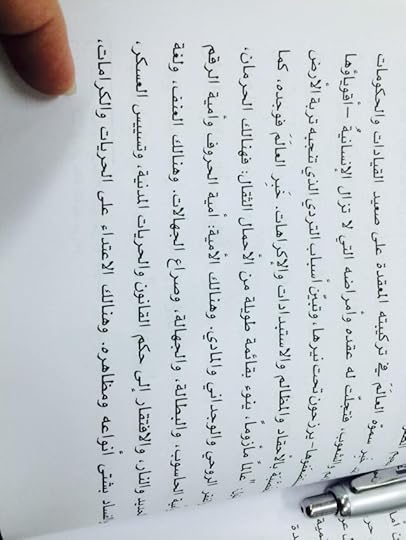 سموّه العالَمَ في تركيبته المعقدة على صعيد القيادات والحكومات
والشعوب، فتجلّت له عقده وأمراضه التي لا تزال الإنسانيةُ -أقوياؤها
وضعفاؤها- يرزحون تحت نيرها، وتبيّن أسباب التردي الذي تنجبه تربة الأرض
بالأحقاد والمظالم والاستبدادات والإكراهات. خَبِر العالَمَ فوجده، كما
عالماً مأزوماً، ينوء بقائمة طويلة من الأحمال الثقال: فهنالك الحرمان،
الروحي والوجداني والمادي. وهنالك الأمية: أمية الحروف وأمية الرقم
الحاسوب، والبطالة، والجهالة، وصراع الجهالات. وهنالك العنف، ولغة
الحديد والنار، والافتقار إلى حكم القانون والحريات المدنية، وتسييس العسكر،
والفساد بشتى أنواعه ومظاهره. وهنالك الاعتداء على الحريات والكرامات،